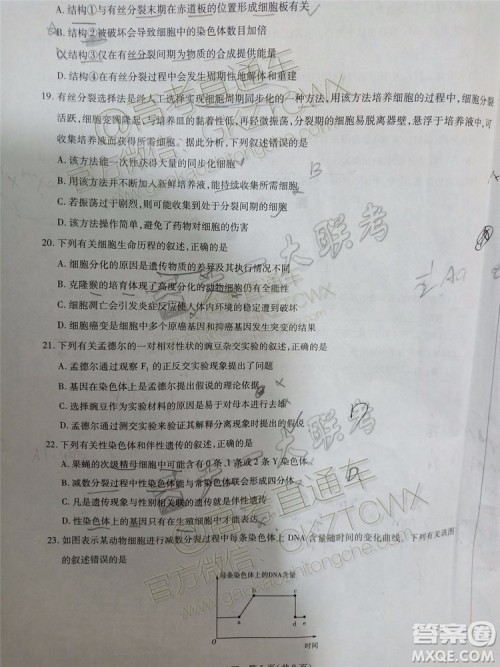 A. 结构①与有丝分裂末期在赤道板的位置形成细胞板有关
B. 结构②被破坏会导致细胞中的染色体数目加倍
C. 结构③仅在有丝分裂间期为物质的合成提供能量
D. 结构④在有丝分裂过程中会发生周期性地解体和重建
19. 有丝分裂选择法是人工选择实现细胞周期同步化的一种方法，用该方法培养细胞的过程中，细胞分裂
活跃，细胞变圆隆起，与培养皿的黏着性低，再经振荡，分裂期的细胞易脱离器壁，悬浮于培养液中，可
收集培养液而获得分裂期的细胞。据此分析，下列叙述错误的是
A. 该方法能一次性获得大量的同步化细胞
B. 用该方法并不断加入新鲜培养液，能持续收集所需细胞
C. 若振荡过于剧烈，则可能也会收集到处于分裂间期的细胞
D. 该方法操作简单，避免了药物对细胞的伤害
20. 下列有关细胞生命历程的叙述，正确的是
A. 细胞分化的原因是遗传物质的差异及其执行情况不同
B. 克隆猴的培育体现了高度分化的动物细胞仍有全能性
C. 细胞凋亡会引发炎症反应使人体内环境的稳定遭到破坏
D. 细胞癌变是细胞中多个原癌基因和抑癌基因突变的结果
21. 下列有关孟德尔的一对相对性状的豌豆杂交实验的叙述，正确的是
A. 孟德尔通过观察 F₁ 的正反交实验现象提出了问题
B. 基因在染色体上是孟德尔提出假说的理论依据
C. 选择豌豆作为实验材料的原因只是易于对母本进行去雄
D. 孟德尔通过测交实验对提出的假说进行了演绎推理
22. 下列有关性染色体和伴性遗传的叙述，正确的是
A. 果蝇的次级精母细胞中可能含有 0 条、1 条或 2 条 Y 染色体
B. 减数分裂过程中性染色体能与常染色体互换部分片段
C. 凡是遗传现象与性别相关联的遗传都是伴性遗传
D. 性染色体上的基因只有在生殖细胞中才能表达
23. 如图表示某动物细胞进行减数分裂过程中每条染色体上 DNA 含量随时间的变化曲线。下列有关该图
的叙述错误的是
每条染色体上的DNA含量
b c
a d e
时间
高考直通车
官方微信：GKZTCWX
www.gaokaozhitongche.com
答案圈
MXQE.COM